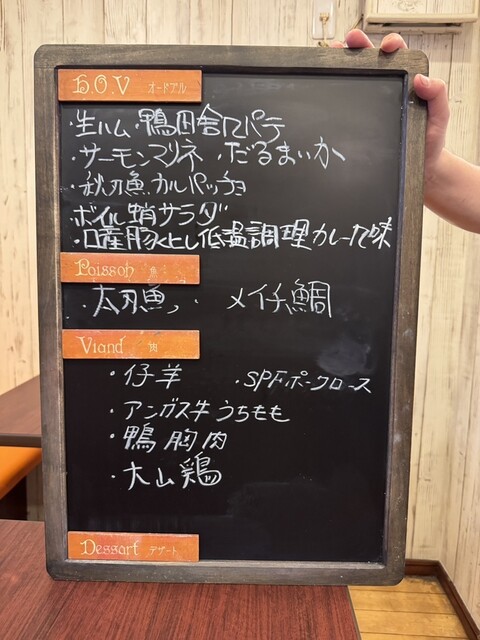 H.O.V オードブル
・生ハム ・鴨田舎風パテ
・サーモンマリネ ・だるまいか
・秋刀魚カルパッチョ
・ボイル蛸サラダ
・口産豚ヒレ低温調理カレー風味
Poisson 魚
・太刀魚 ・メイチ鯛
Viand 肉
・仔羊 ・SPFポークロース
・アンガス牛うちもも
・鴨胸肉
・大山鶏
Dessart デザート